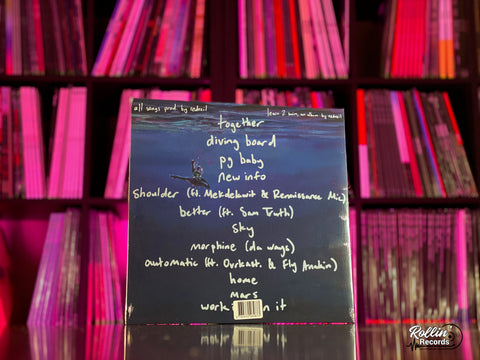 all songs prod. by redveil
learn 2 swim, an album by redveil
together
diving board
pg baby
new info
shoulder (ft. Mekdelawit & Renaissance Mic)
better (ft. Sam Truth)
sky
morphine (da ways)
automatic (ft. Ovrkast. & Fly Anakin)
home
mars
work n it
Rollin'
Records